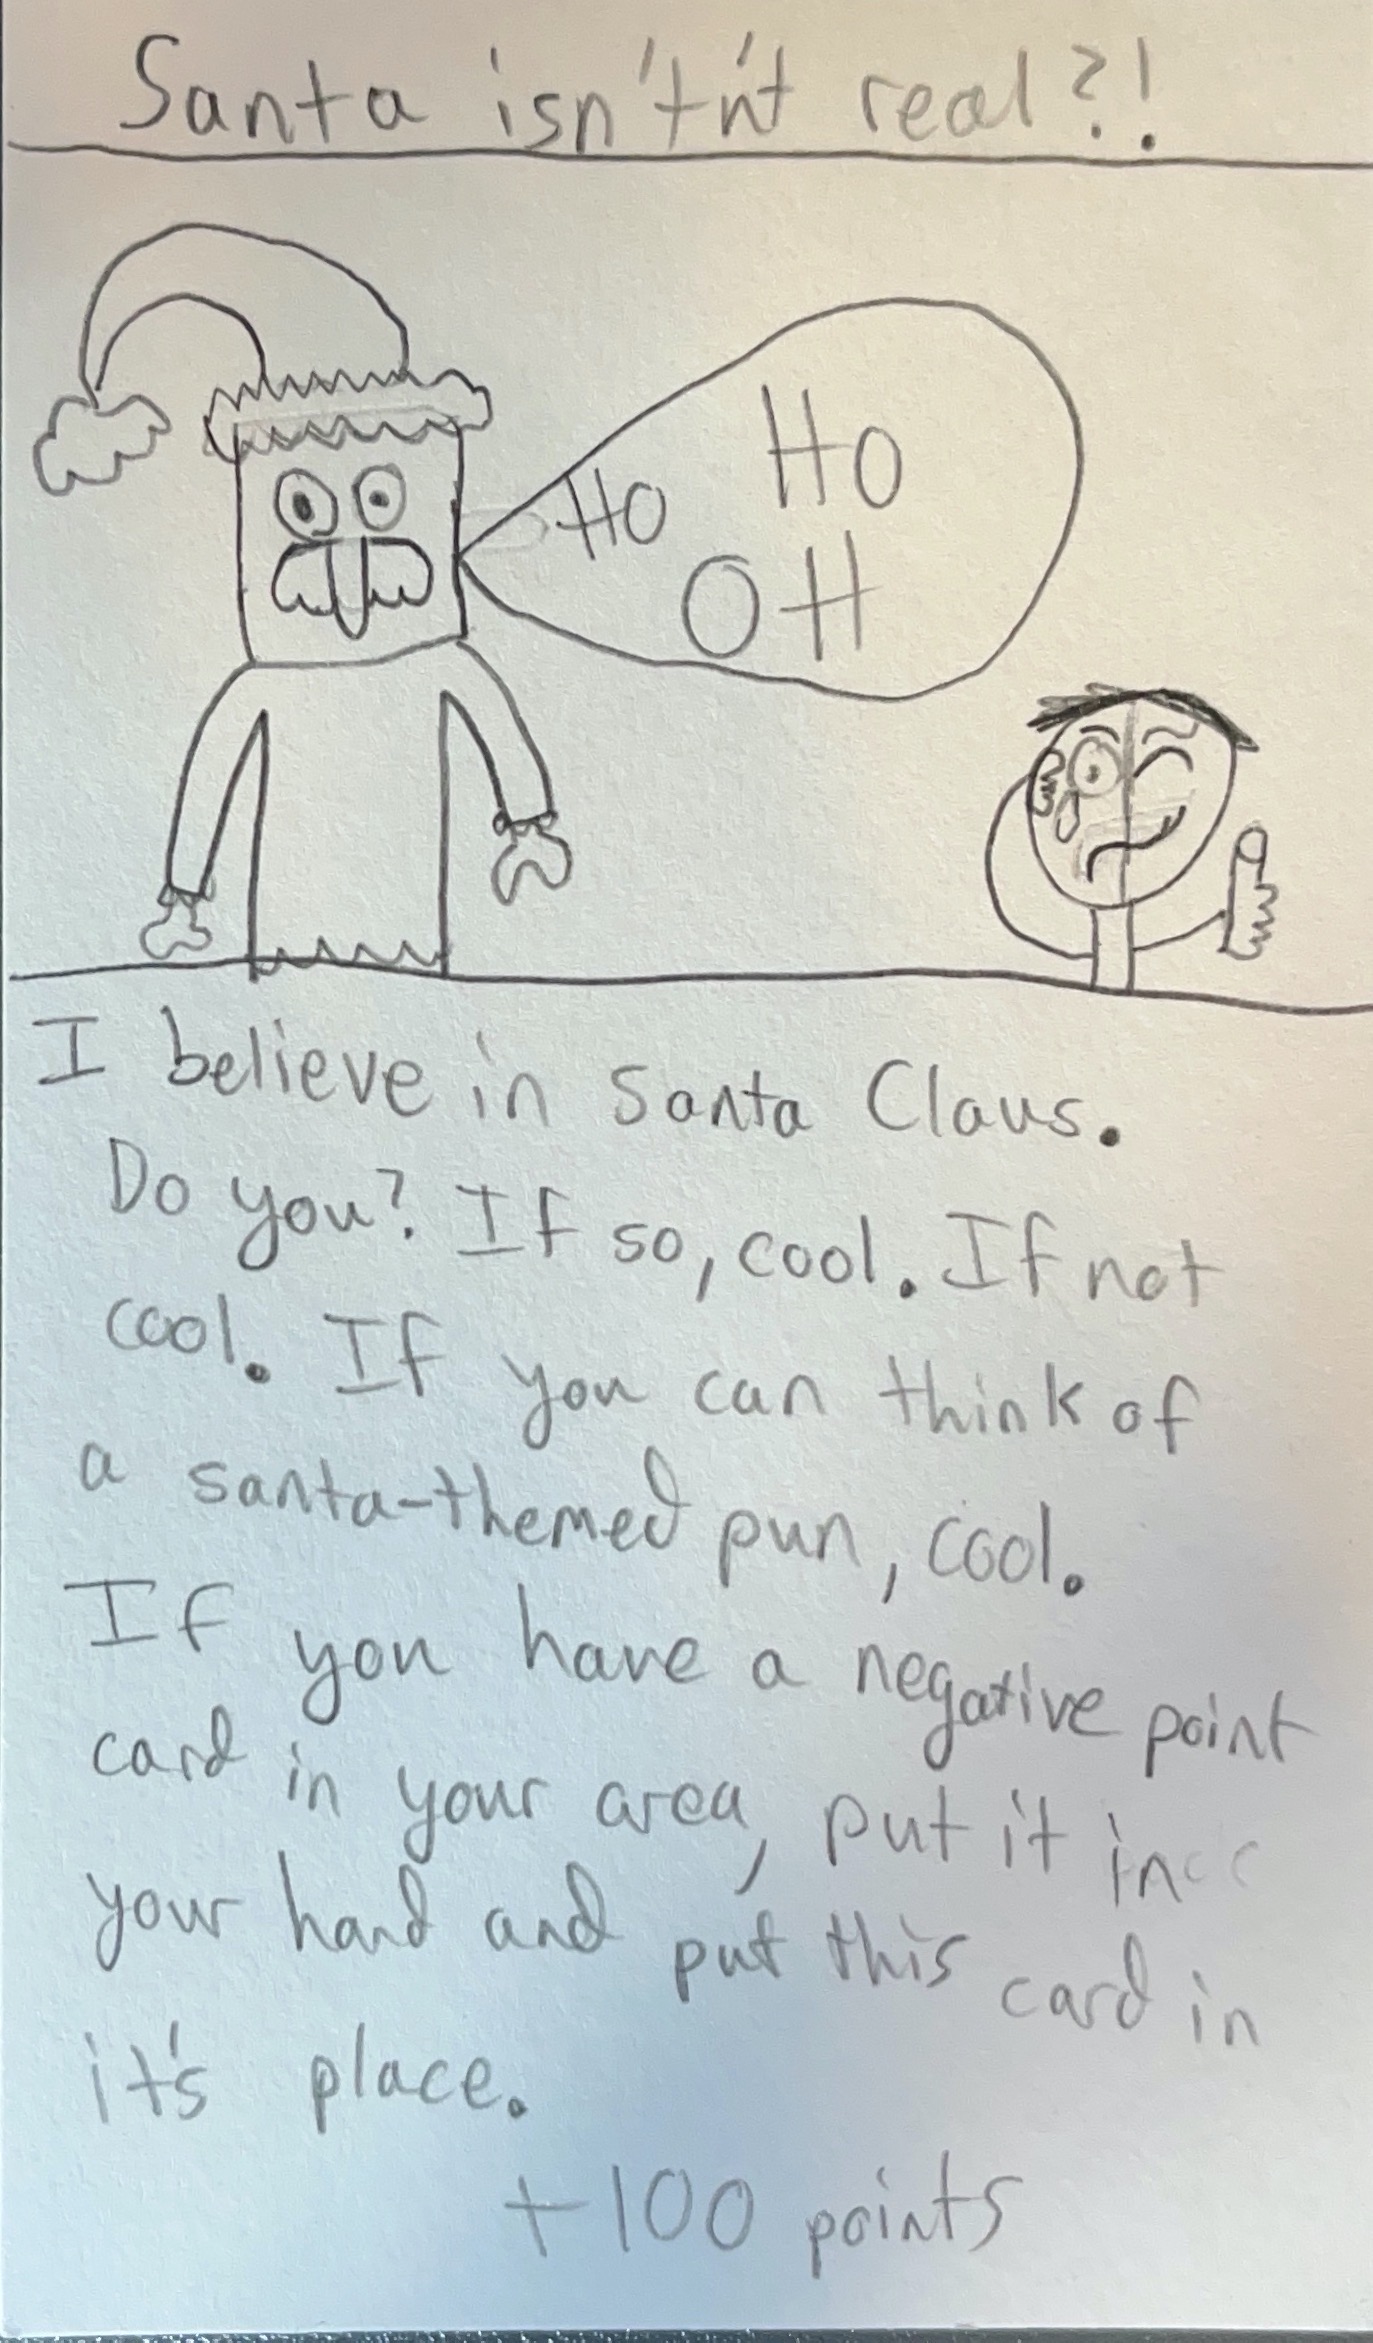 Santa isn't'n't real?!
Ho
Ho
OH
I believe in Santa Claus.
Do you? If so, cool. If not
cool. If you can think of
a santa-themed pun, cool.
If you have a negative point
card in your area, put it in
your hand and put this card in
it's place.
+100 points